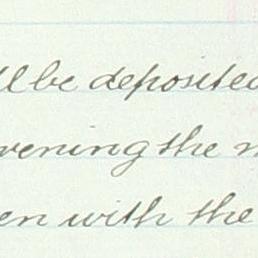 ll be deposited
vening the
en with the